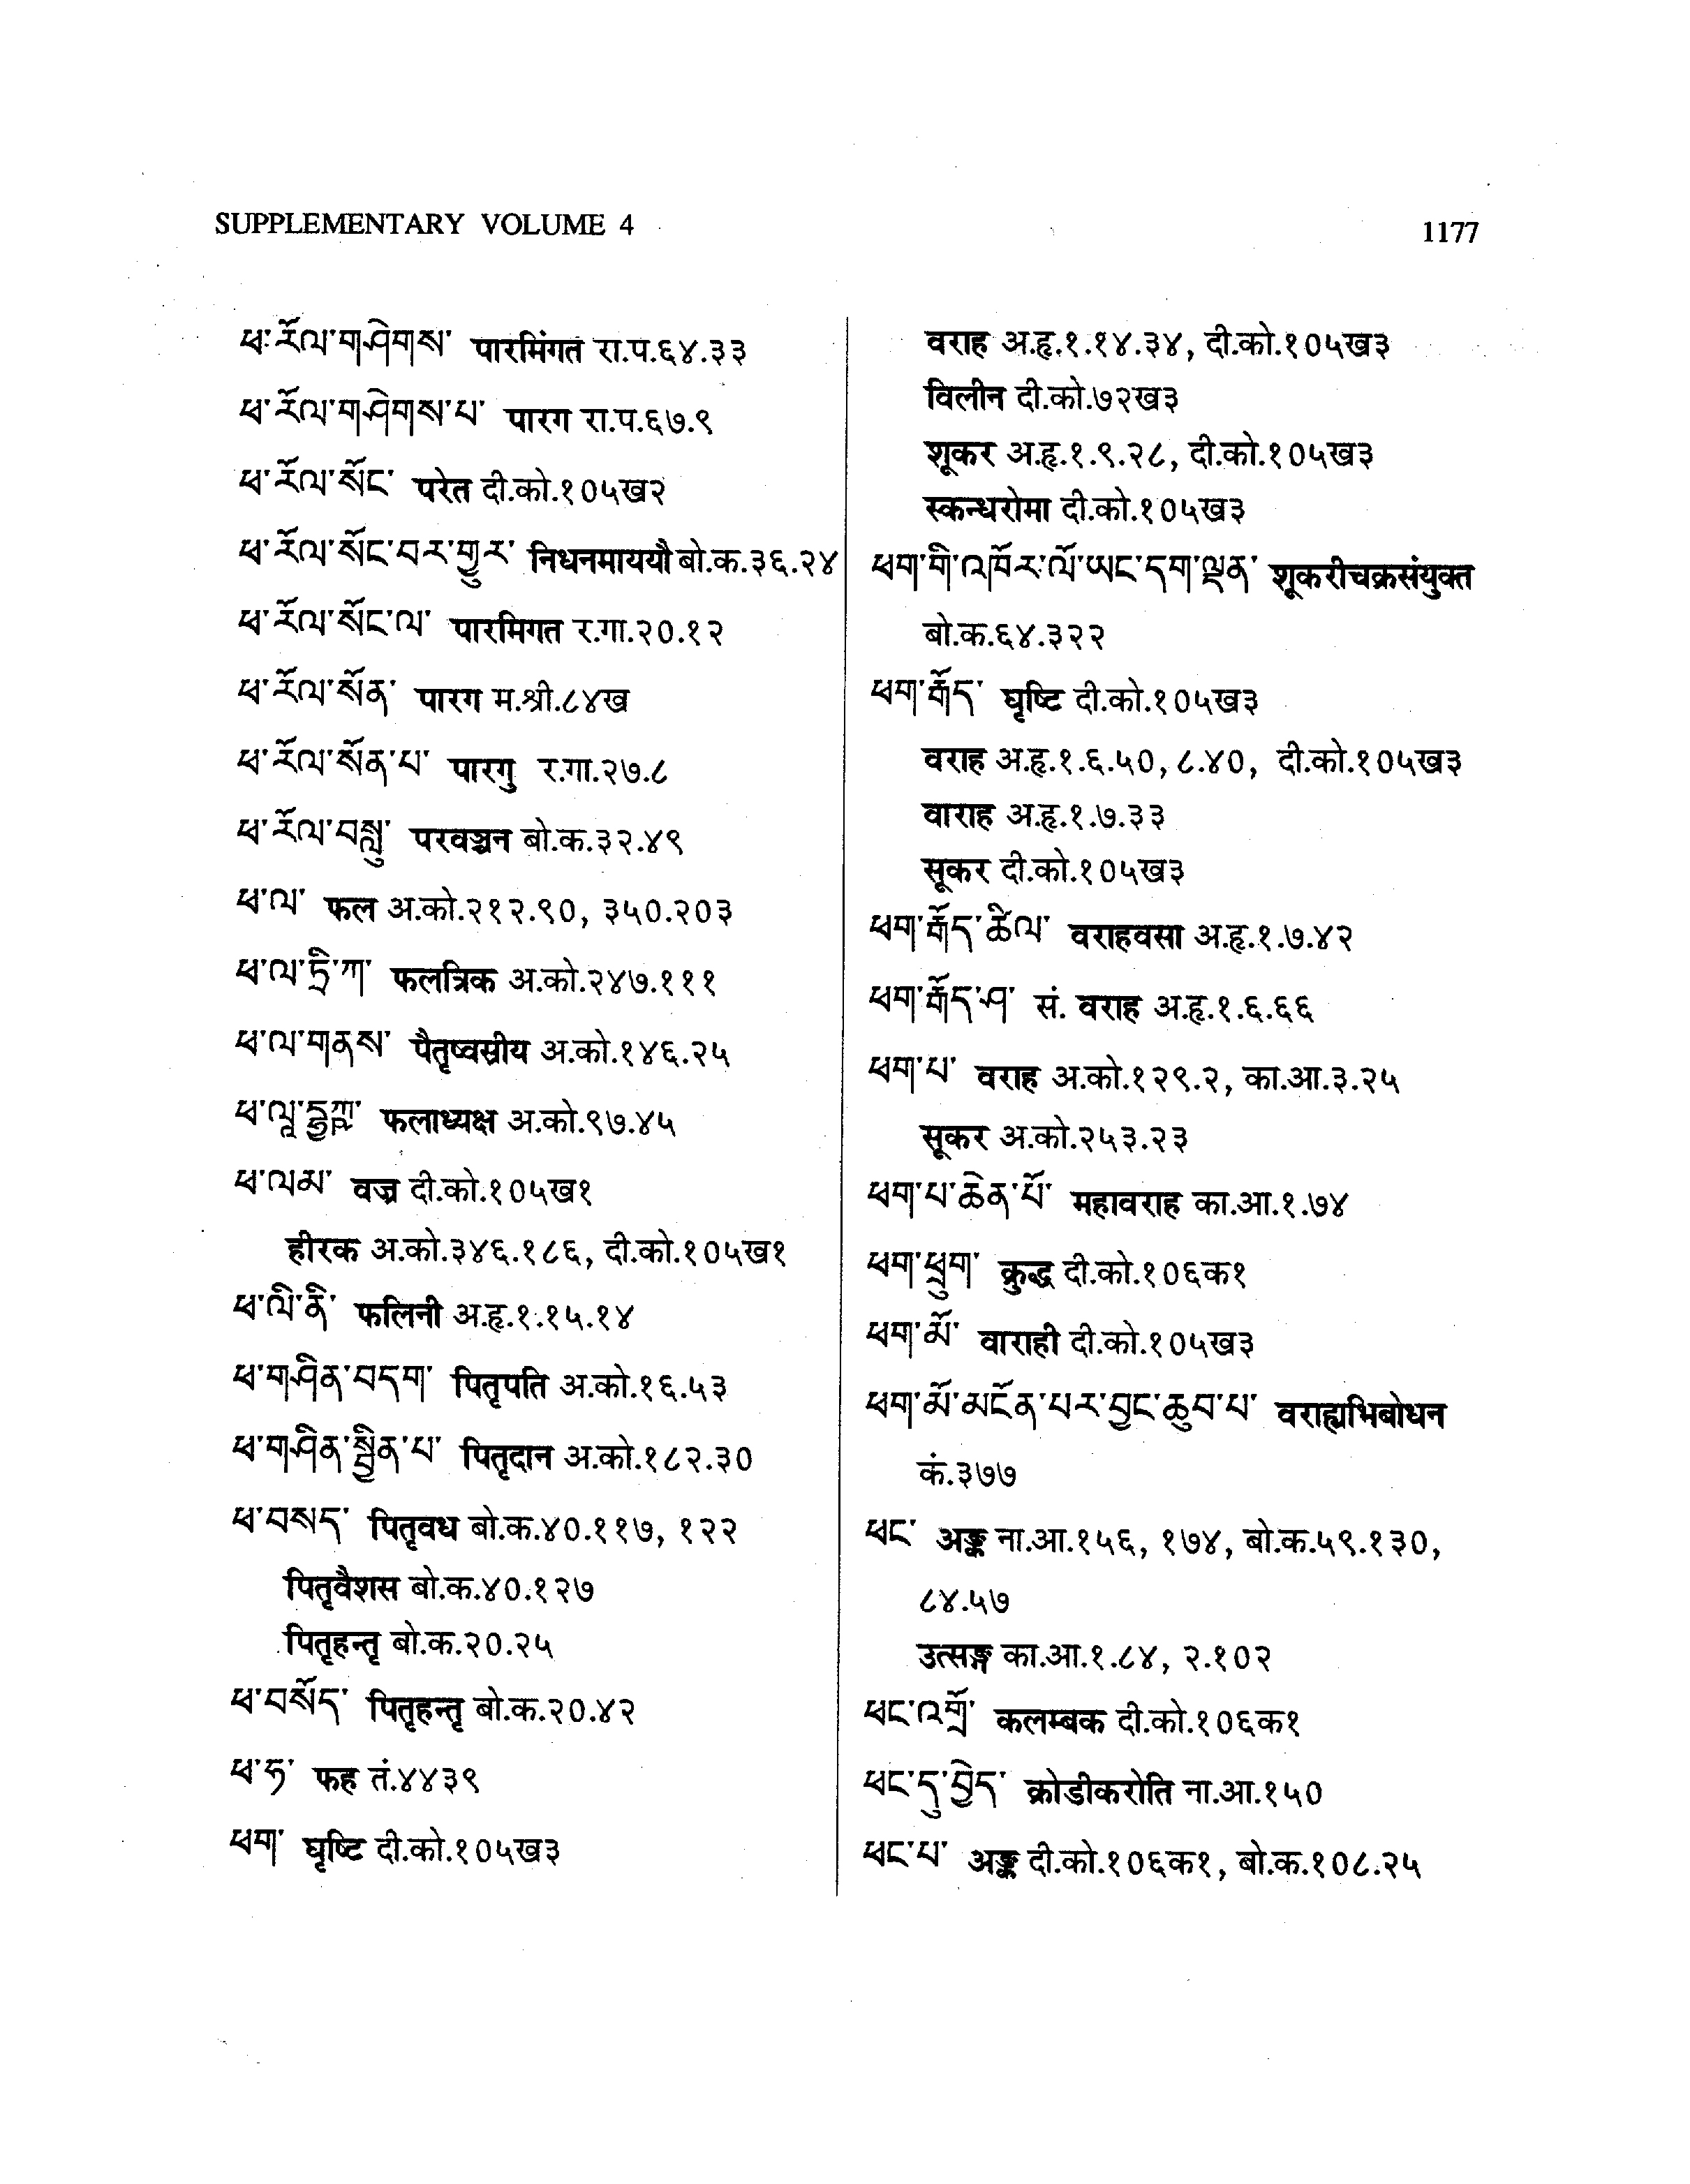 SUPPLEMENTARY VOLUME 4
1177
ཕ་རོལ་གཤེགས་ पारमिंगत रा.प.६४.३३
ཕ་རོལ་གཤེགས་པ་ पारग रा.प.६७.९
ཕ་རོལ་སོང་ परेत दी.को.१०५ख२
ཕ་རོལ་སོང་བར་གྱུར་ निधनमाययौ बो.क.३६.२४
ཕ་རོལ་སོང་ལ་ पारमिगत र.गा.२०.१२
ཕ་རོལ་སོན་ पारग म.श्री.८४ख
ཕ་རོལ་སོན་པ་ पारगु र.गा.२७.८
ཕ་རོལ་བསླུ་ परवञ्चन बो.क.३२.४९
ཕ་ལ་ फल अ.को.२१२.९०, ३५०.२०३
ཕ་ལ་ཏྲི་ཀ་ फलत्रिक अ.को.२४७.१११
ཕ་ལ་གནས་ पैतृष्वस्रीय अ.को.१४६.२५
फलाध्यक्ष अ.को.९७.४५
ཕ་ལམ་ वज्र दी.को.१०५ख१
हीरक अ.को.३४६.१८६, दी.को.१०५ख१
ཕ་ལི་ནི་ फलिनी अ.हृ.१.१५.१४
ཕ་གཤིན་བདག་ पितृपति अ.को.१६.५३
ཕ་གཤིན་སྦྱིན་པ་ पितृदान अ.को.१८२.३०
ཕ་བསད་ पितृवध बो.क.४०.११७, १२२
पितृवैशस बो.क.४०.१२७
पितृहन्तृ बो.क.२०.२५
ཕ་བསོད་ पितृहन्तृ बो.क.२०.४२
ཕ་ཧ་ फह तं.४४३९
ཕག་ घृष्टि दी.को.१०५ख३
वराह अ.हृ.१.१४.३४, दी.को.१०५ख३
विलीन दी.को.७२ख३
शूकर अ.हृ.१.९.२८, दी.को.१०५ख३
स्कन्धरोमा दी.को.१०५ख३
ཕག་གི་འཁོར་ལོ་ཡང་དག་ལྡན་ शूकरीचक्रसंयुक्त
बो.क.६४.३२२
ཕག་རྒོད་ घृष्टि दी.को.१०५ख३
वराह अ.हृ.१.६.५०, ८.४०, दी.को.१०५ख३
वाराह अ.हृ.१.७.३३
सूकर दी.को.१०५ख३
ཕག་རྒོད་ཚིལ་ वराहवसा अ.हृ.१.७.४२
ཕག་རྒོད་ཤ་ सं. वराह अ.हृ.१.६.६६
ཕག་པ་ वराह अ.को.१२९.२, का.आ.३.२५
सूकर अ.को.२५३.२३
ཕག་པ་ཆེན་པོ་ महावराह का.आ.१.७४
ཕག་ཕྲུག་ क्रुद्ध दी.को.१०६क१
ཕག་མོ་ वाराही दी.को.१०५ख३
ཕག་མོ་མངོན་པར་བྱང་ཆུབ་པ་ वराह्यभिबोधन
कं.३७७
ཕང་ अङ्क ना.आ.१५६, १७४, बो.क.५९.१३०,
८४.५७
उत्सङ्ग का.आ.१.८४, २.१०२
ཕང་འགྲོ་ कलम्बक दी.को.१०६क१
ཕང་དུ་བྱེད་ क्रोडीकरोति ना.आ.१५०
ཕང་པ་ अङ्क दी.को.१०६क१, बो.क.१०८.२५